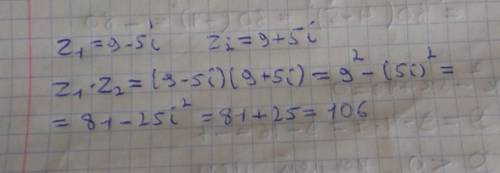 z₁ = 9 - 5i zᵢ = 9 + 5i
z₁ · z₂ = (9 - 5i)(9 + 5i) = 9² - (5i)² =
= 81 - 25i² = 81 + 25 = 106